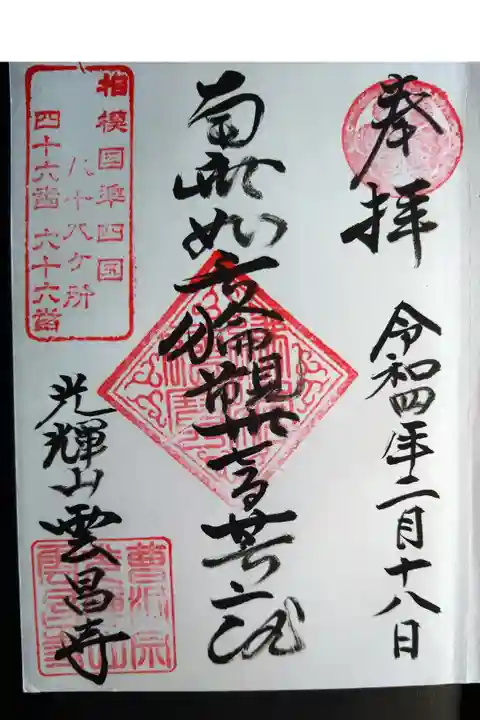 奉拝
令和四年二月十八日
南無如意輪観世音菩薩
相模国準四国
八十八ケ所
四十六番 六十六番
光輝山 雲昌寺
曹洞宗